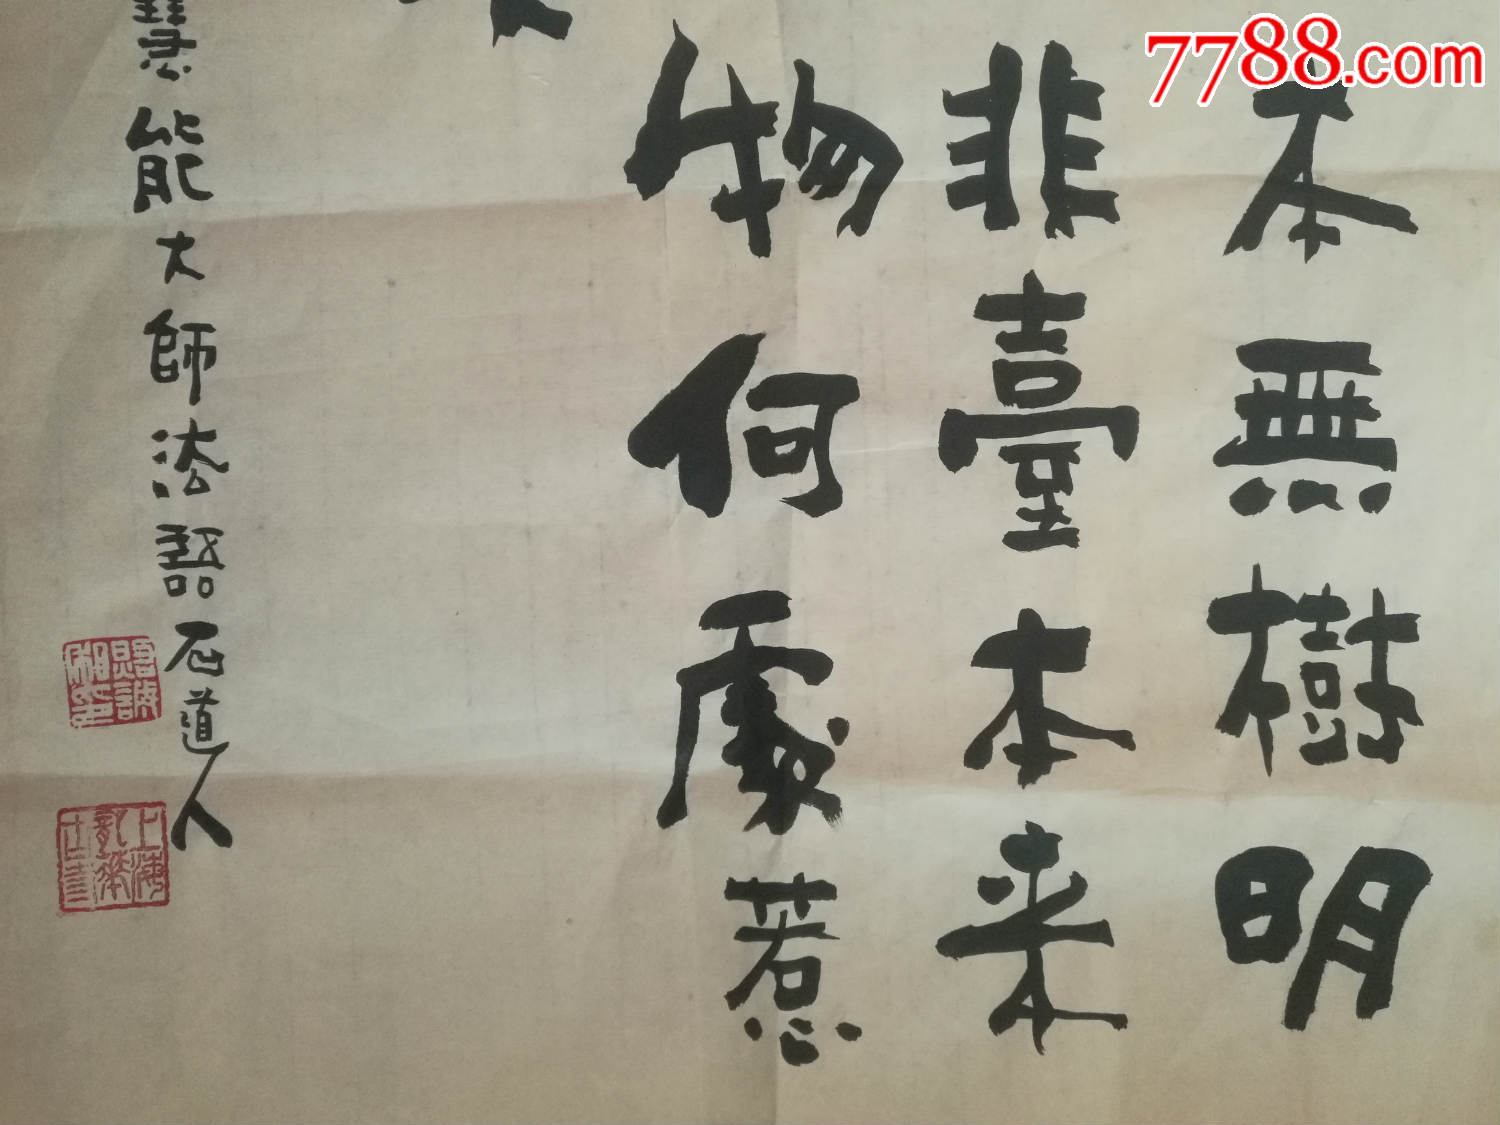 7788.com
本無樹明
非臺本来
物何處惹
慧能大師法語石道人
上海